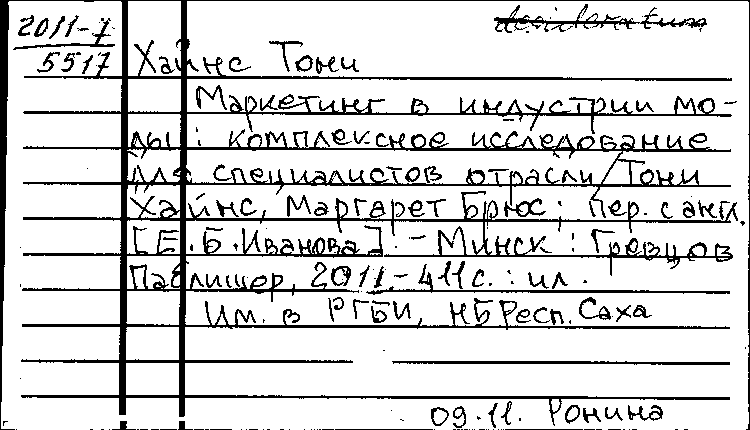 2011-7
5517
desideratum
Хайнс Тони
Маркетинг в индустрии мо-
ды : комплексное исследование
для специалистов отрасли / Тони
Хайнс, Маргарет Брюс ; пер. с англ.
[Е.Б.Иванова]. - Минск : Гревцов
Паблишер, 2011.- 411 с. : ил.
Им. в РГБИ, НБ Респ. Саха
09.11. Ронина